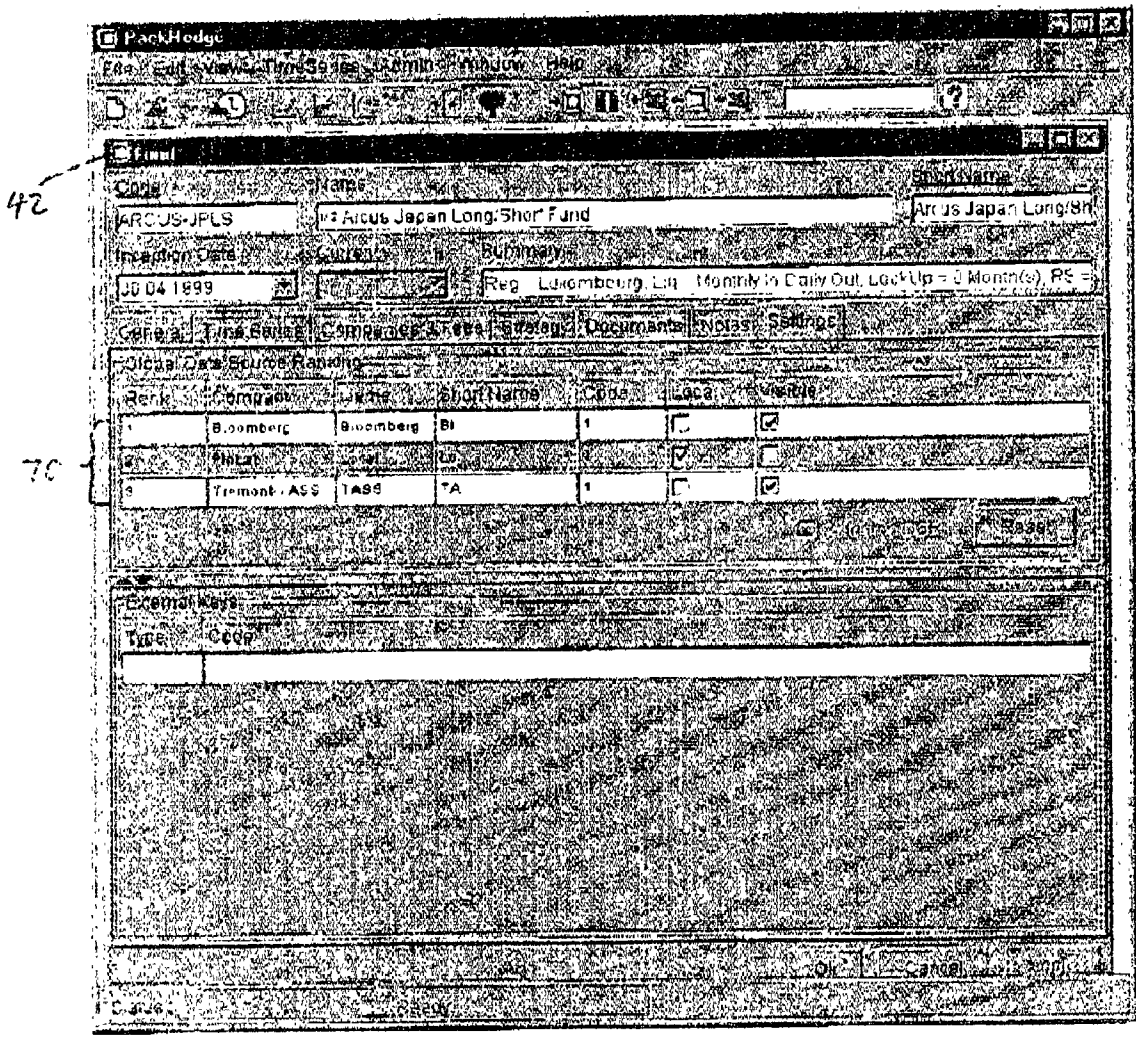 PackHedge
File Edit View TimeSeries Admin Window Help
?
42
Fund
Code Name Short Name
ARCUS-JPLS Arcus Japan Long/Short Fund Arcus Japan Long/Sh
Inception Date Currency Summary
30 04 1999 Reg Luxembourg, Liq Monthly In Daily Out, LockUp = 0 Month(s), RS =
General Time Series Companies & Fees Strategy Documents Notes Settings
Global Data Source Ranking
Rank Company Name Short Name Code Local Visible
1 Bloomberg Bloomberg Bl 1
70
2 Local Lo
3 Tremont TASS TASS TA 1
Reset
External Keys
Type Code
Ok Cancel